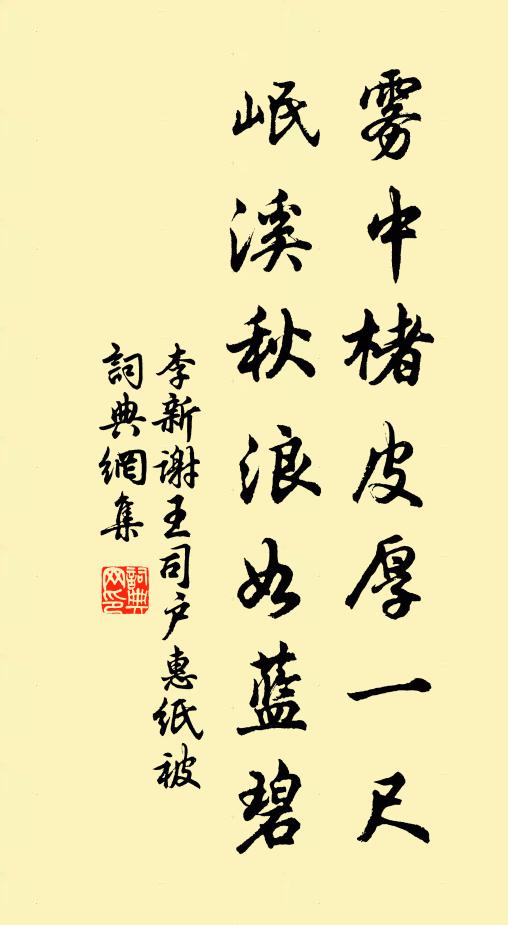 雾中楮皮厚一尺
岷溪秋浪如藍碧
李新谢王司户惠纸被
詞典網集
詞典网印